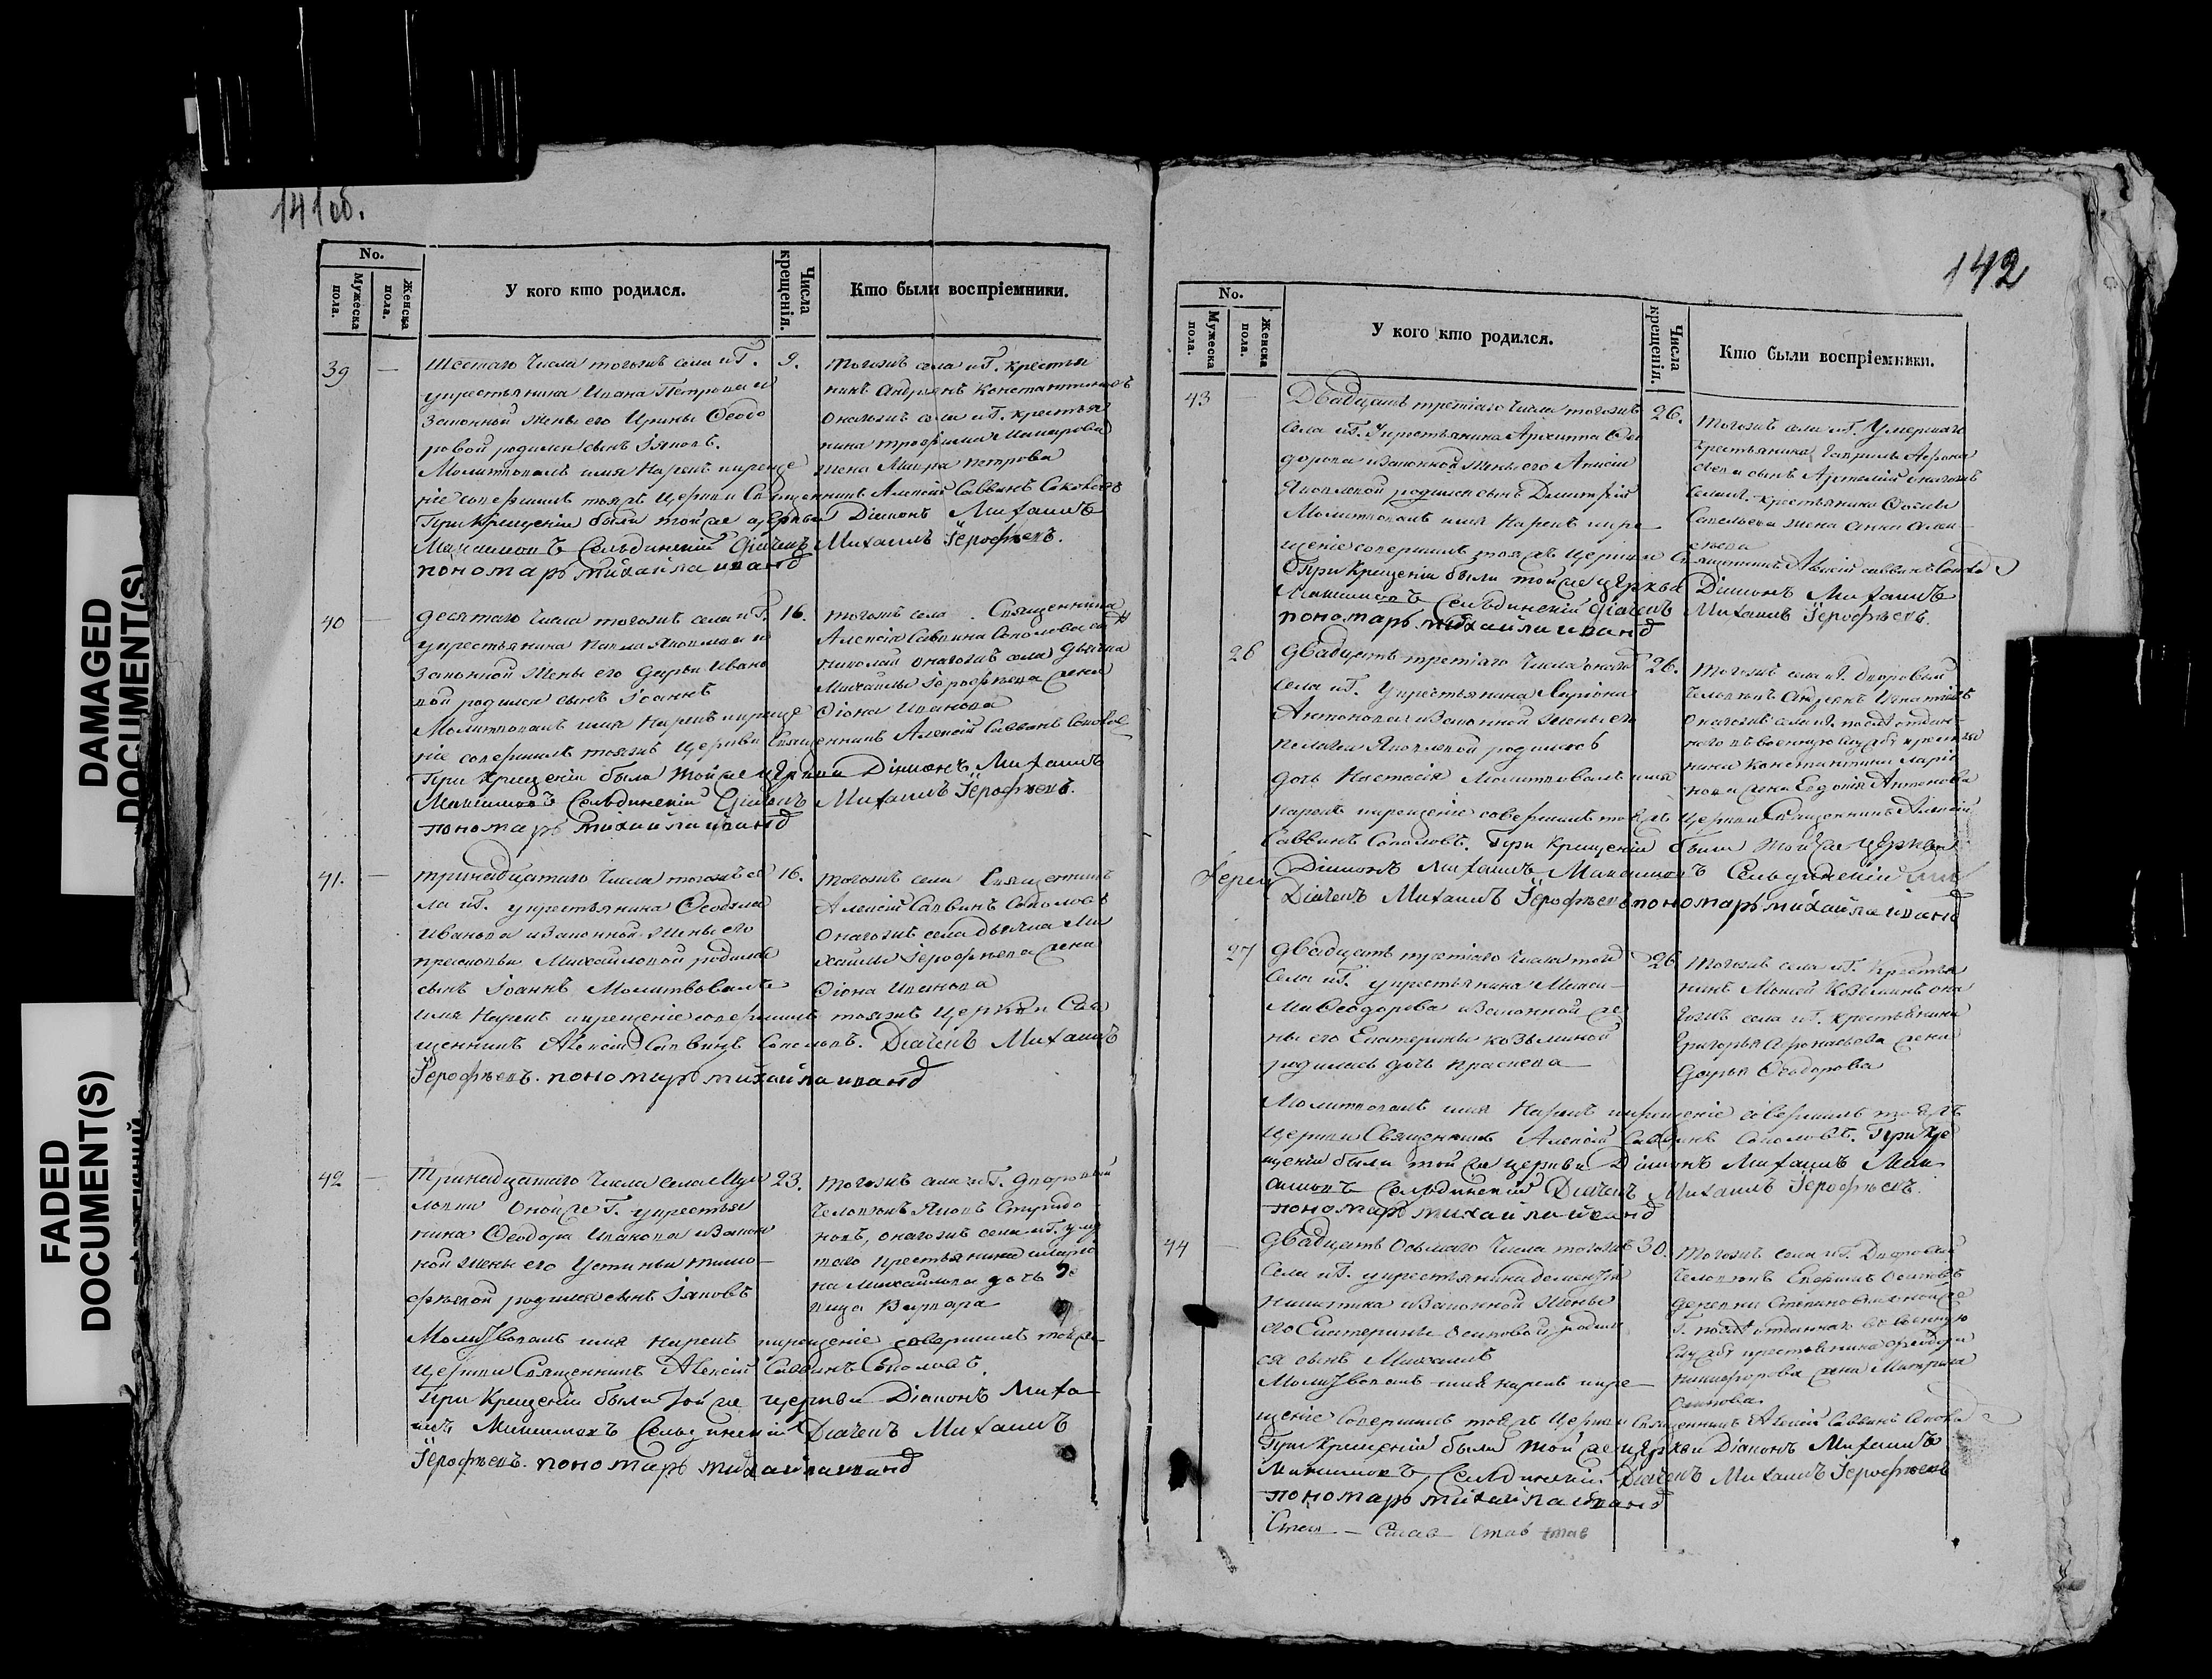 141 об.
No.
Мужеска пола.
Женска пола.
У кого кто родился.
Числа крещенія.
Кто были воспріемники.
39
Шестаго числа тогожъ села и Г.
укрестьянина Ивана Петрова и
Законной жены его Ирины Ѳеодо
ровой родился сынъ Іяковъ.
Молитвовалъ имя нарекъ икреще
ніе совершилъ тояжъ Церкви Священникъ Алексій Саввинъ Соколовъ
При Крещеніи были той же церкви Діаконъ Михаилъ
Максимовъ Сельдинскій Діачекъ Михаилъ Іерофѣевъ.
пономарь михайла иванд
9.
Тогожъ села и Г. крестья
нинъ Андріянъ Константиновъ
Онагожъ села и Г. крестья
нина трофима Макарова
жена Мавра петрова
40
десятаго числа тогожъ села и Г.
укрестьянина Павла Яковлева и
Законной жены его дарьи Ивано
вой родился сынъ Іоаннъ
Молитвовалъ имя Нарекъ икреще
ніе совершилъ тояжъ Церкви Священникъ Алексій Саввинъ Соколов
При Крещеніи были той же церкви Діаконъ Михаилъ
Максимовъ Сельдинскій Діачекъ Михаилъ Іерофѣевъ.
пономарь михайла иванд
16.
тогожъ села Священника
Алексія Саввина Соколова сынъ
Николай онагожъ села дьячка
Михайлы Іерофѣева жена
Ѳіона Иванова
41.
тринадцатаго числа тогожъ се
ла и Г. укрестьянина Ѳеодула
Иванова изаконной жены его
прасковьи Михайловой родился
сынъ Іоаннъ Молитвовалъ
имя Нарекъ икрещеніе совершилъ тояжъ Церкви Свя
щенникъ Алексій Саввинъ Соколовъ. Діачекъ Михаилъ
Іерофѣевъ. пономарь михайла иванд
16.
тогожъ села Священникъ
Алексій Саввинъ Соколовъ
Онагожъ села дьячка Ми
хайлы Іерофѣева жена
Ѳіона Иванова
42
Тринадцатаго числа села
Онойже Г. укрестья
нина Ѳеодора Иванова изакон
ной жены его Устиньи тимо-
фѣевой родился сынъ Іяковъ
Молитвовалъ имя Нарекъ икрещеніе совершилъ тойже
Церкви Священникъ Алексій Саввинъ Соколовъ.
При Крещеніи были той же церкви Діаконъ Миха
илъ Максимовъ Сельдинскій Діачекъ Михаилъ
Іерофѣевъ. пономарь михайла иванд
23.
тогожъ села и Г. дворовый
человѣкъ Яковъ
новъ, онагожъ села и Г. умер
шаго крестьянина
на Михайлова дочь
вица Варвара
142
No.
Мужеска пола.
Женска пола.
У кого кто родился.
Числа крещенія.
Кто были воспріемники.
43
Двадцать третіаго числа тогожъ
села и Г. укрестьянина Архиппа Ѳео
дорова изаконной жены его Анисіи
Яковлевой родился сынъ Димитрій
Молитвовалъ имя Нарекъ икре
щеніе совершилъ тояжъ Церкви Священникъ Алексій саввинъ Соколо
При Крещеніи были той же церкви Діаконъ Михаилъ
Максимовъ Сельдинскій Діачекъ Михаилъ Іерофѣевъ.
пономарь михайла иванд
26.
тогожъ села и Г. Умершаго
крестьянина Гаврилы Афона
сьева сынъ Артемій онагожъ
села и Г. крестьянина
Савельева жена Анна Алек
сѣева
26
двадцать третіаго числа онаго
села и Г. укрестьянина Ларіона
Антонова изаконной жены его
пелагеи Яковлевой родилась
дочь Настасія Молитвовалъ имя
нарекъ икрещеніе совершилъ тояжъ Церкви Священникъ Алексій
Саввинъ Соколовъ. При Крещеніи были той же церкви
Діаконъ Михаилъ Максимовъ Сельдинскій
Діачекъ Михаилъ Іерофѣевъ пономарь михайла иванд
26.
тогожъ села и Г. дворовый
человѣкъ Андреянъ Игнатьевъ
онагожъ села и Г. отдан-
наго въ военную службу крестья
нина Константина Ларіо
нова жена Евдокія Антонова
27
двадцать третіаго числа той
села и Г. укрестьянина Макси-
ма Ѳеодорова изаконной же
ны его Екатерины козьминой
родилась дочь
Молитвовалъ имя Нарекъ икрещеніе совершилъ тояжъ
Церкви Священникъ Алексій Саввинъ Соколовъ. При Кре
щеніи были той же церкви Діаконъ Михаилъ Мак
симовъ Сельдинскій Діачекъ Михаилъ Іерофѣевъ.
пономарь михайла иванд
26
тогожъ села и Г. Крестья
нинъ Моисей Козьминъ она
гожъ села и Г. крестьянина
Григорья Афонасьева жена
Дарья Ѳеодорова
44
двадцать Осьмаго числа тогожъ
Села и Г. укрестьянина дементія
Никитина изаконной жены
его Екатерины Осиповой родил
ся сынъ Михаилъ
Молитвовалъ имя нарекъ икре
щеніе Совершилъ тояжъ Церкви Священникъ Алексій Саввинъ Соколо
При Крещеніи были той же церкви Діаконъ Михаилъ
Максимовъ Сельдинскій. Діачекъ Михаилъ Іерофѣевъ
пономарь михайла иванд
30.
тогожъ села и Г. Дворовый
человѣкъ Евфимъ Осиповъ
деревни
Г. отданнаго въ военную
службу крестьянина
Никифорова жена Матрена
Осипова
DAMAGED
DOCUMENT(S)
FADED
DOCUMENT(S)